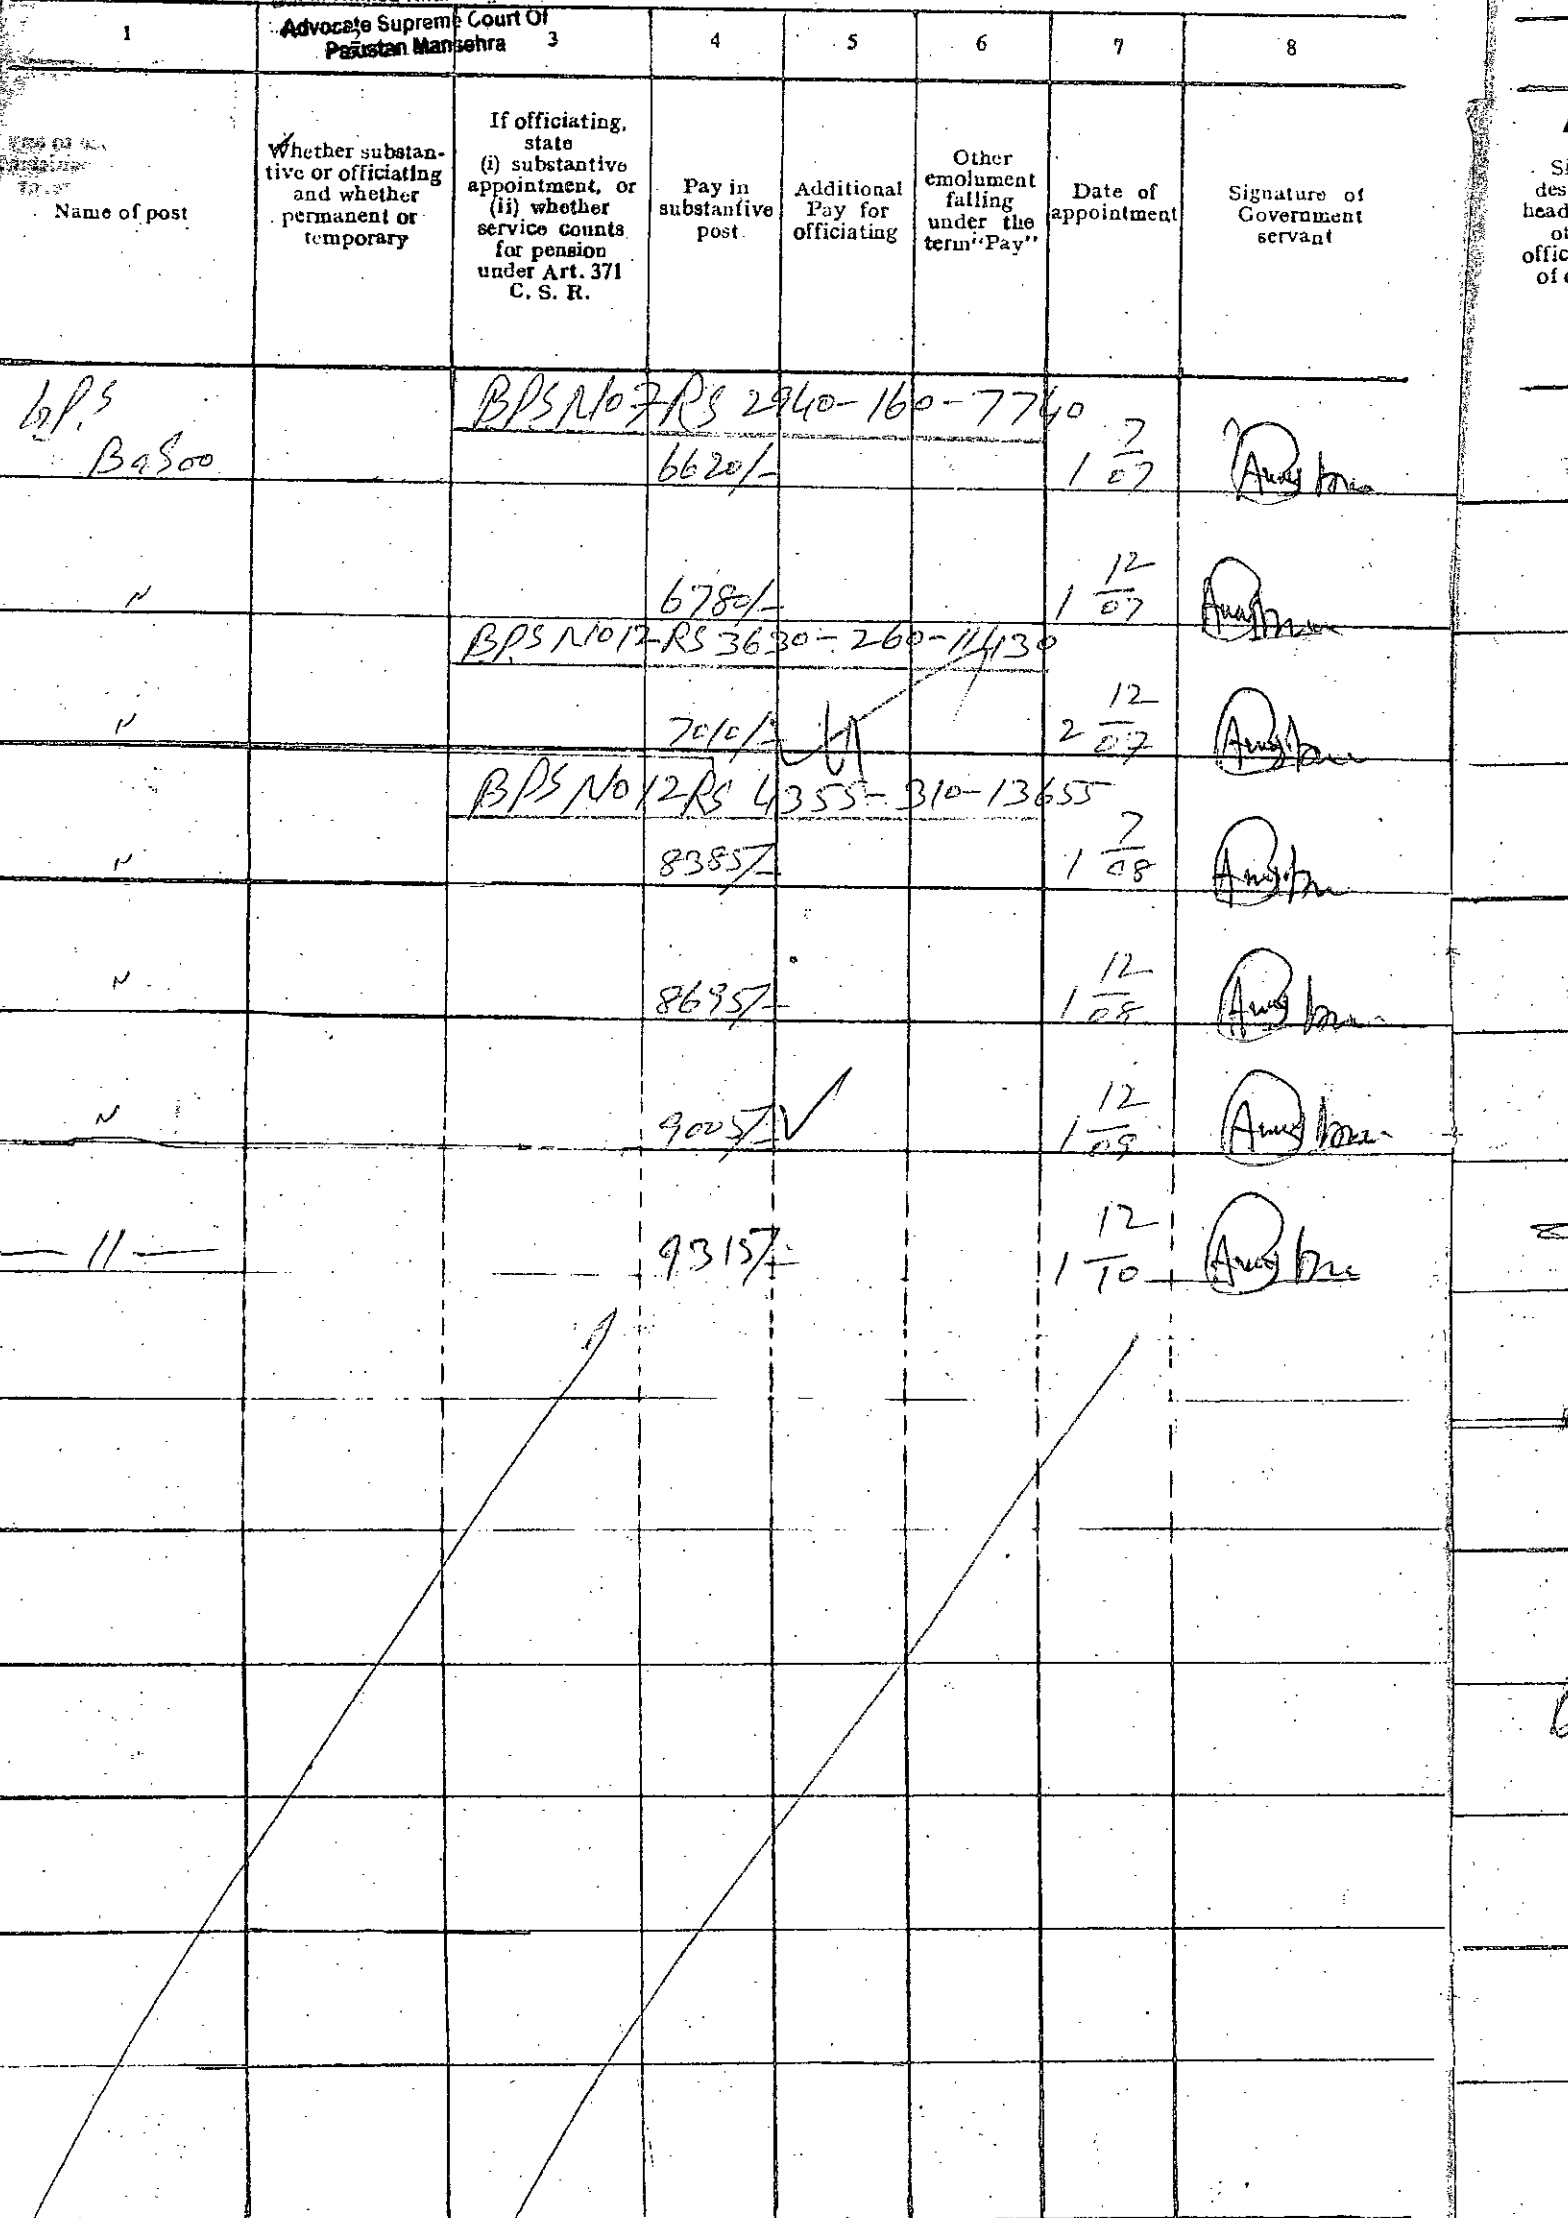 Advocate Supreme Court Of
Pakistan Mansehra
1 3 4 5 6 7 8
Name of post
Whether substan-
tive or officiating
and whether
permanent or
temporary
If officiating,
state
(i) substantive
appointment, or
(ii) whether
service counts
for pension
under Art. 371
C. S. R.
Pay in
substantive
post.
Additional
Pay for
officiating
Other
emolument
falling
under the
term "Pay"
Date of
appointment
Signature of
Government
servant
GPS BPS No 7 RS 2940-160-7740
Basoo 6620/- 1 7/07
" 6780/- 1 12/07
BPS No 12 RS 3630-260-11430
" 7010/- 2 12/07
BPS No 12 RS 4355-310-13655
" 8385/- 1 7/08
" 8695/- 1 12/08
" 9005/- 1 12/09
— 11 — 9315/- 1 12/10